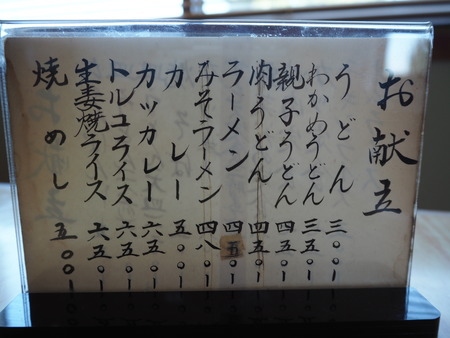 お献立
うどん 三〇〇ー
わかめうどん 三五〇ー
親子うどん 四五〇ー
肉うどん 四五〇ー
ラーメン 四五〇ー
みそラーメン 四八〇ー
カレー 五〇〇ー
カツカレー 六五〇ー
トルコライス 六五〇ー
生姜焼ライス 六五〇ー
焼めし 五〇〇ー